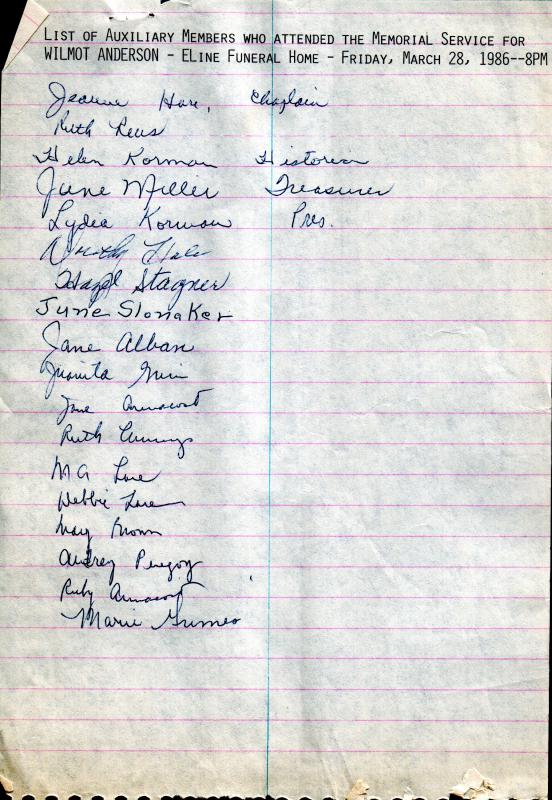 LIST OF AUXILIARY MEMBERS WHO ATTENDED THE MEMORIAL SERVICE FOR
WILMOT ANDERSON - ELINE FUNERAL HOME - FRIDAY, MARCH 28, 1986--8PM
Jeanne Hare, Chaplain
Ruth
Helen Korman Historian
June Miller Treasurer
Lydia Korman Pres.
Dorothy Hale
Hazel Stagner
June Slonaker
Jane Alban
Juanita
Jane Armacost
Ruth Cummings
Debbie
May Brown
Audrey Peregoy
Ruby Armacost
Marie Grimes